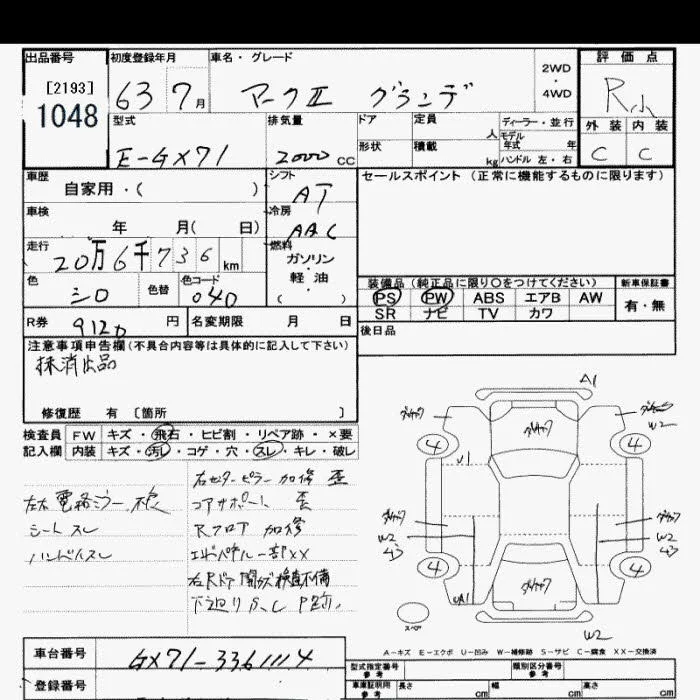 出品番号
[2193]
1048
初度登録年月
63 7月
車名・グレード
マークII グランデ
2WD
・
4WD
評価点
R
外装 内装
C C
型式
E-GX71
排気量
2000 CC
ドア
形状
定員
人
積載
kg
ディーラー・並行
モデル
年式 年
ハンドル 左・右
車歴
自家用・( )
シフト
AT
セールスポイント (正常に機能するものに限ります)
車検
年 月( 日)
冷房
AAC
走行
20万6千736 km
燃料
ガソリン
・
軽・油
( )
色
シロ
色替
色コード
040
装備品 (純正品に限り○をつけてください)
新車保証書
PS PW ABS エアB AW
有・無
SR ナビ TV カワ
R券 9120 円
名変期限 月 日
後日品
注意事項申告欄(不具合内容等は具体的に記入して下さい)
抹消出品
修復歴 有 〔箇所 〕
検査員
記入欄
FW キズ・飛石・ヒビ割・リペア跡・×要
内装 キズ・汚レ・コゲ・穴・スレ・キレ・破レ
右センターピラー 加修 歪
左右 電格ミラー
コアサポート 歪
シート スレ
Rフロア 加修
ハンドルスレ
エンドパネル一部XX
右Rドア 開カズ検査不備
下廻り
A1
W2
U1
4 4
W2
4 4
UA1
スペア
W2
A-キズ E-エクボ U-凹み W-補修跡 S-サビ C-腐食 XX-交換済
車台番号 GX71-3361114
登録番号
型式指定番号
参考
類別区分番号
参考
車庫証明用
参考
長さ cm 幅 cm 高さ cm